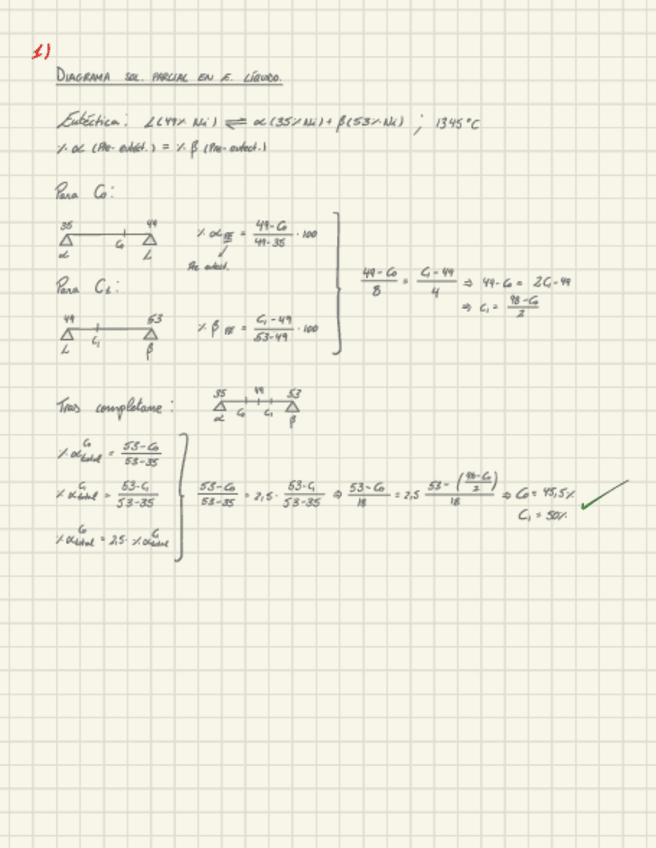 1)
DIAGRAMA SOL. PARCIAL EN E. LÍQUIDO.
Eutéctica: L(49% Ni) ⇌ α(35% Ni) + β(53% Ni) ; 1345°C
% α (Pre-eutéct.) = % β (Pre-eutect.)
Para C0:
35 49
α C0 L
% α PE = 49-C0 / 49-35 · 100
Pre eutect.
Para C1:
49 53
L C1 β
% β PE = C1-49 / 53-49 · 100
49-C0 / 8 = C1-49 / 4 ⇒ 49-C0 = 2C1-49
⇒ C1 = 98-C0 / 2
Tras completarse:
35 49 53
α C0 C1 β
% α total C0 = 53-C0 / 53-35
% α total C1 = 53-C1 / 53-35
% α total C0 = 2,5 · % α total C1
53-C0 / 53-35 = 2,5 · 53-C1 / 53-35 ⇒ 53-C0 / 18 = 2,5 53-(98-C0 / 2) / 18 ⇒ C0 = 45,5%
C1 = 50%